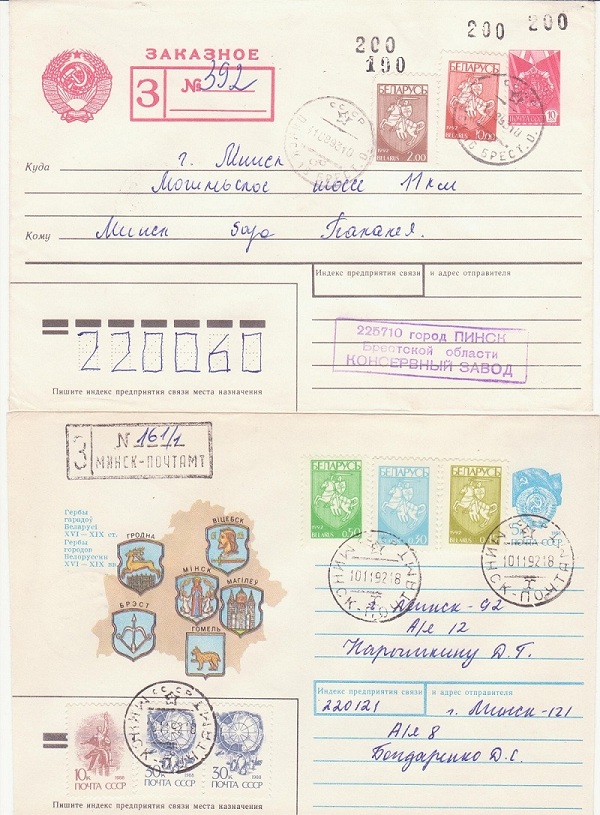 200
200
200
190
ЗАКАЗНОЕ
З
№ 392
БЕЛАРУСЬ
1992
BELARUS
2.00
БЕЛАРУСЬ
1992
BELARUS
10.00
ПОЧТА СССР
10к
СССР
Куда
г. Минск
Могилевское шоссе 11 км
Кому
Минск база
Индекс предприятия связи
и адрес отправителя
220060
Пишите индекс предприятия связи места назначения
225710 город ПИНСК
Брестской области
КОНСЕРВНЫЙ ЗАВОД
З
N 161/1
МИНСК-ПОЧТАМТ
Гербы
гарадоў
Беларусі
XVI – XIX ст.
Гербы
городов
Белоруссии
XVI – XIX вв.
ГРОДНА
ВІЦЕБСК
МІНСК
МАГІЛЕЎ
БРЭСТ
ГОМЕЛЬ
БЕЛАРУСЬ
1992
BELARUS
0.50
БЕЛАРУСЬ
0.30
БЕЛАРУСЬ
ПОЧТА СССР
МИНСК-ПОЧТАМТ
10119218
МИНСК-ПОЧТАМТ
10119218
г. Минск-92
А/я 12
Парошкину Д.Г.
Индекс предприятия связи
и адрес отправителя
220121
г. Минск-121
А/я 8
Бондаренко Д.С.
10к
1988
ПОЧТА СССР
30к
1988
ПОЧТА СССР
30к
1988
ПОЧТА СССР
Пишите индекс предприятия связи места назначения